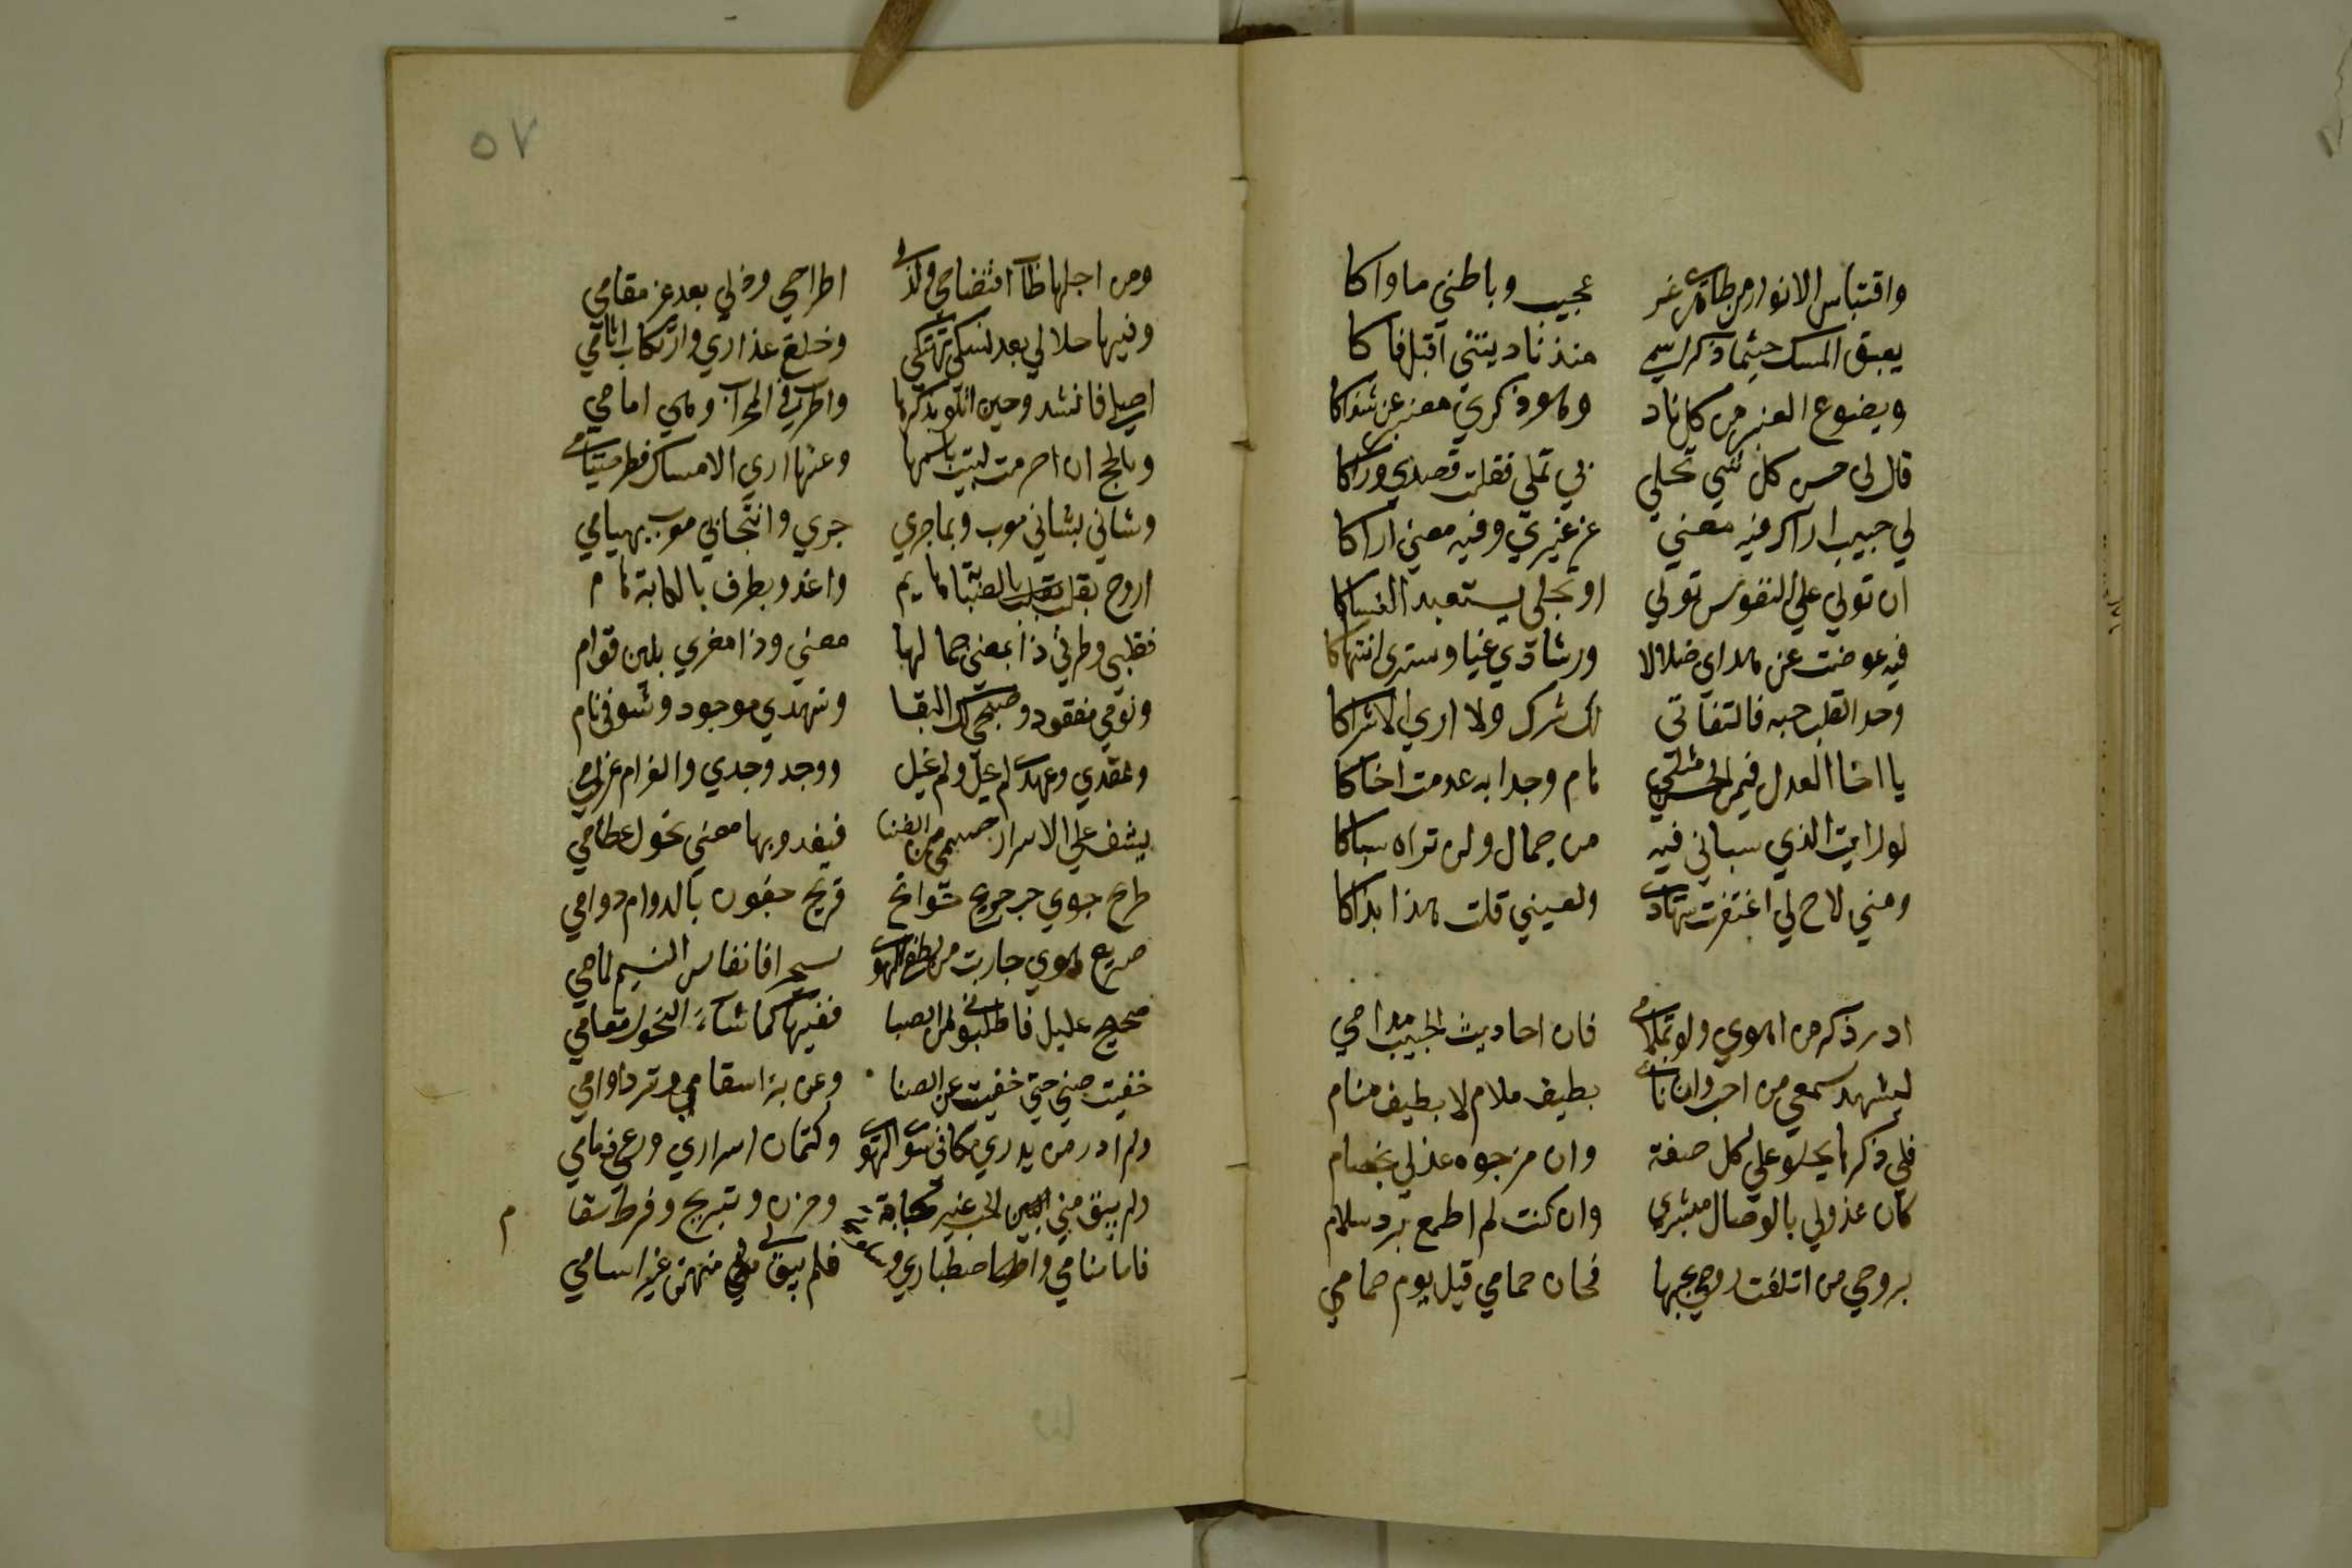 واقتباس الانوار من ظاهري غير عجيب وباطني ماواكا
يعبق المسك حيثما ذكر اسمي منذ ناديتني اقبل فاكا
ويضوع العنبر من كل ناد وهو ذكري معبر عن شذاكا
قال لى حسن كل شي تجلي بي تملي فقلت قصدي وراكا
لي حبيب اراك فيه معني غر غيري وفيه معني اراكا
ان تولي علي النفوس تولي او تجلى يستعبد النساكا
فيه عوضت عن هداى ضلالا ورشادي غيا وسترى انتهاكا
وحد القلب حبه فالتفاتى لك شرك ولا اري الاشراكا
يا اخا العدل فيمن الحسن مثلي هام وجدا به عدمت اخاكا
لو رايت الذي سباني فيه من جمال ولن تراه سباكا
ومتي لاح لي اغتفرت سهادي ولعيني قلت هذا بذاكا
ادر ذكر من اهوي ولو بملامي فان احاديث الحبيب مدامي
ليشهد سمعي من احب وان ناي بطيف ملام لا بطيف منام
فلي ذكرها يحلو علي كل صفة وان مزجوه عذلي بخصام
كان عذولي بالوصال مبشري وان كنت لم اطمع برد سلام
بروحي من اتلفت روحي بحبها فحان حمامي قبل يوم حمامي
٥٧
ومن اجلها طاب افتضاحي ولذلي اطراحي وذلي بعد عز مقامي
وفيها حلا لي بعد نسكي تهتكي وخلع عذاري وارتكاب اثامي
اصلي فانشد وحين اتلو بذكرها واطرب في المحراب وهي امامي
وبالحج ان احرمت لبيت باسمها وعنها اري الامساك فطر صيامي
وشاني بشاني معرب وبما جري جري وانتحابي معرب بهيامي
اروح بقلب بالصبابة هايم واغدو بطرف بالكابة هام
فقلبى وطرفي ذا بمعني جمالها معني وذا مغري بلين قوام
ونومي مفقود وصبحي لك البقا وسهدي موجود وشوقي نام
وعقدي وعهدي لم يحل ولم يحل ووجد وجدي والغرام غرامي
يشف علي الاسرار جسمي من الضنا فيغدو بها معني نحول عظامي
طرح جوي جريح جوانح قريح جفون بالدوام دوامي
صريع هوي جاريت من لطفي الهوى سحيرا فانفاس النسيم لمامي
صحيح عليل فاطلبوني من الصبا ففيها كما شاء النحول مقامي
خفيت ضني حتي خفيت عن الضنا وعن برء اسقامي وبرد اوامي
ولم ادر من يدري مكاني سوى الهوى وكتمان اسراري ورعي ذمامي
ولم يبق مني الحب غير كابة وحزن وتبريح وفرط سقا م
فاما منامي واصطباري و فلم يبق لي منهن غير اسامي